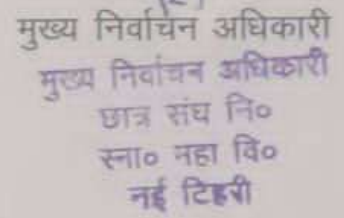 मुख्य निर्वाचन अधिकारी
मुख्य निर्वाचन अधिकारी
छात्र संघ नि०
स्ना० महा वि०
नई टिहरी